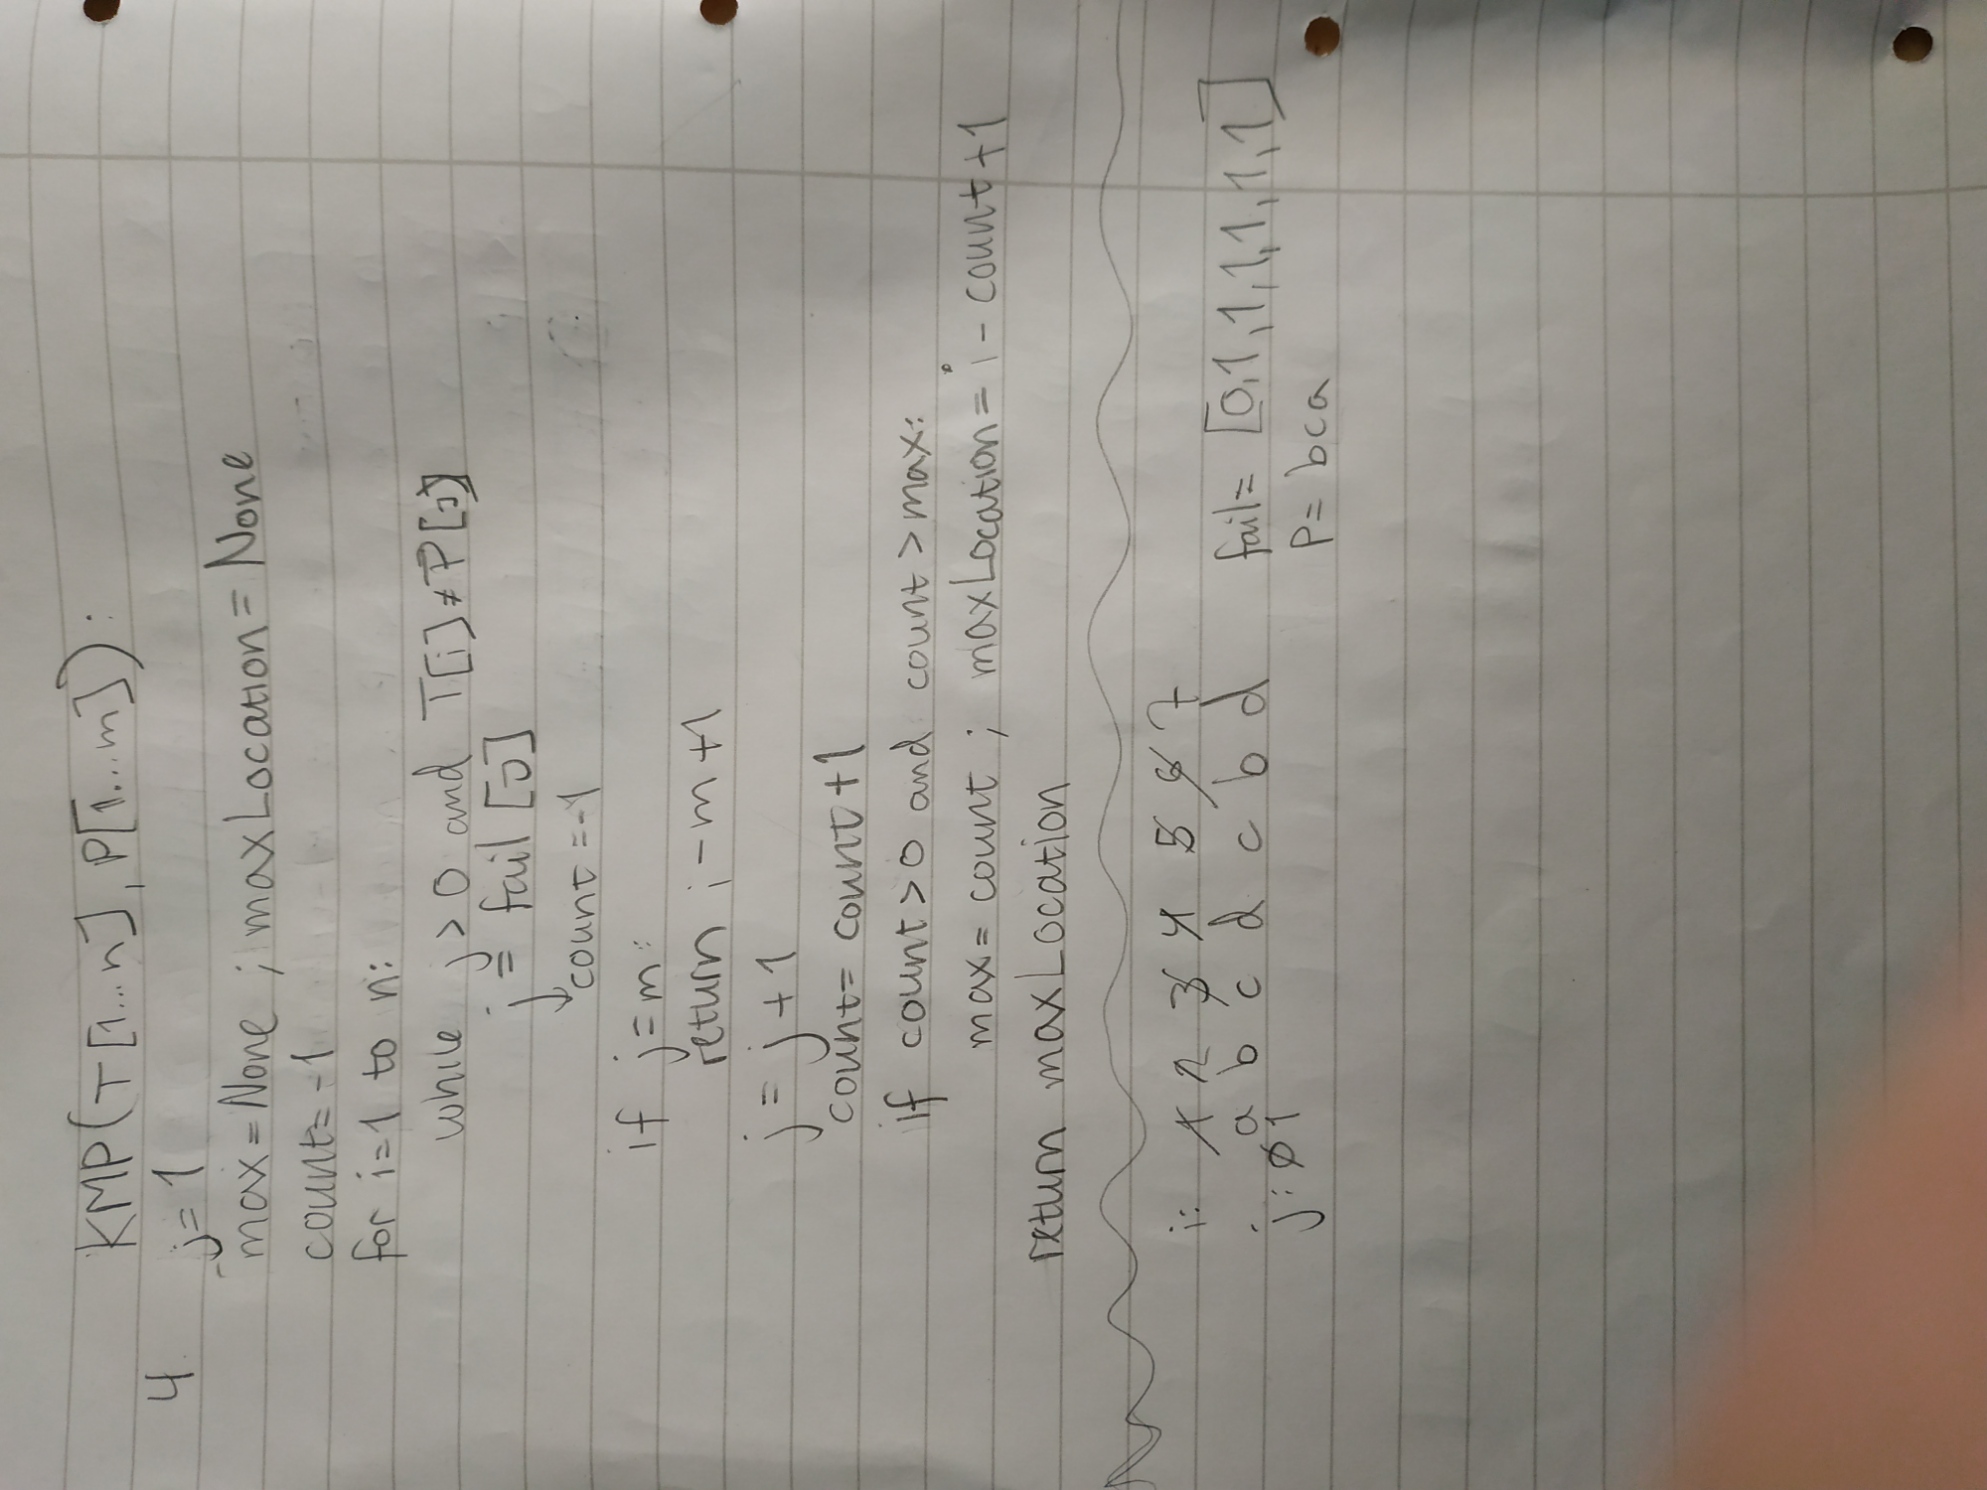 KMP(T[1...n], P[1...m]):
4. j=1
max=None ; maxLocation=None
count=-1
for i=1 to n:
while j>0 and T[i]≠P[j]
j = fail[j]
count=-1
if j=m:
return i-m+1
j=j+1
count=count+1
if count>0 and count>max:
max=count ; maxLocation=i-count+1
return maxLocation
i: 1 2 3 4 5 6 7
a b c d c b d fail=[0,1,1,1,1,1,1]
j: 0 1 P=bca